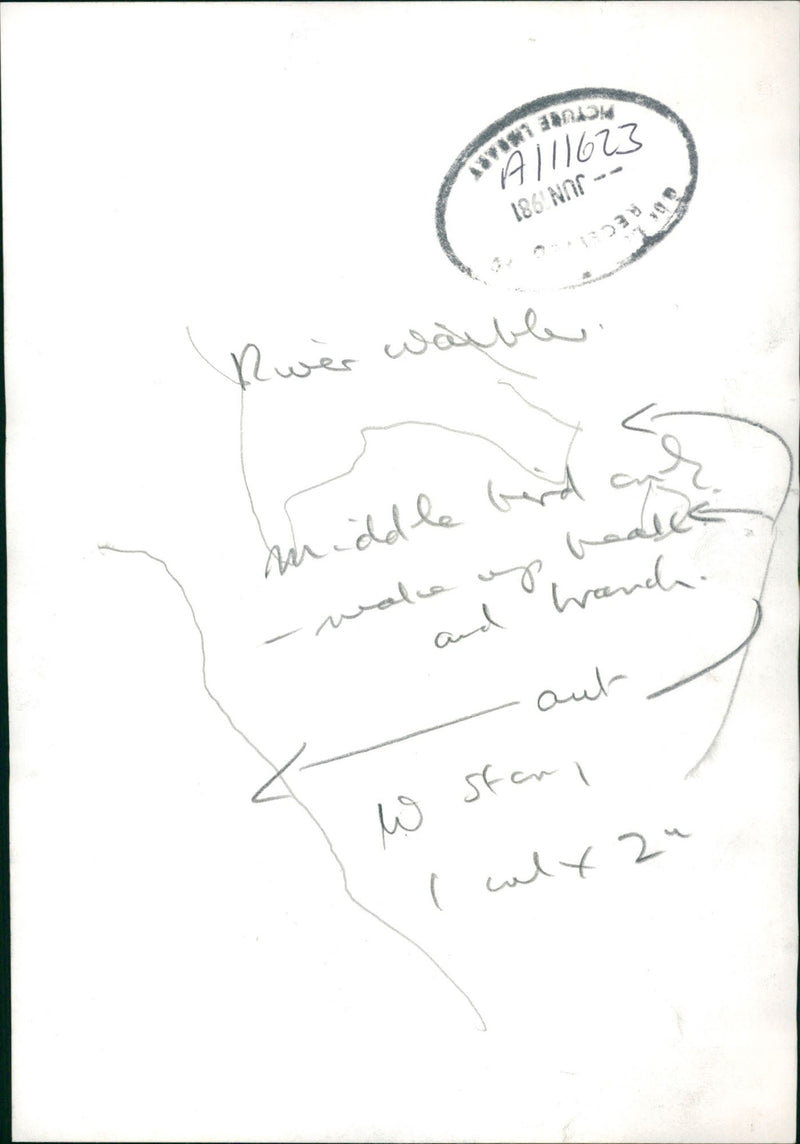 PICTURE LIBRARY
A111623
-- JUN 1981
RECEIVED
River Warbler.
Middle bird only.
- make up beak
and branch.
out
W Star,
1 col x 2"